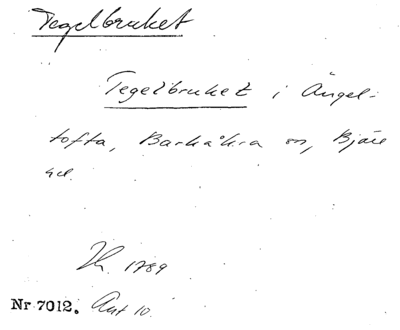 Tegelbruket
Tegelbruket i Ängel-
tofta, Barkåkra sn, Bjäre
hd.
1789
Nr 7012. Ant 10.